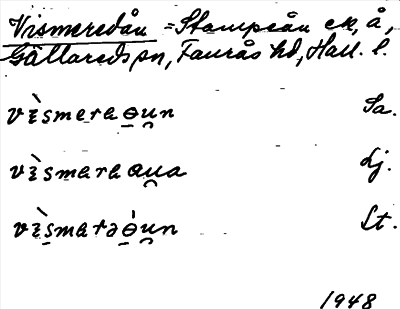 Vismeredån = Stampeån ek, å,
Gällareds sn, Faurås hd, Hall. l.
vìsmeraɵu̯n Sa.
vìsmaraau̯a Lj.
vìsmarəɵ́u̯n Lt.
1948